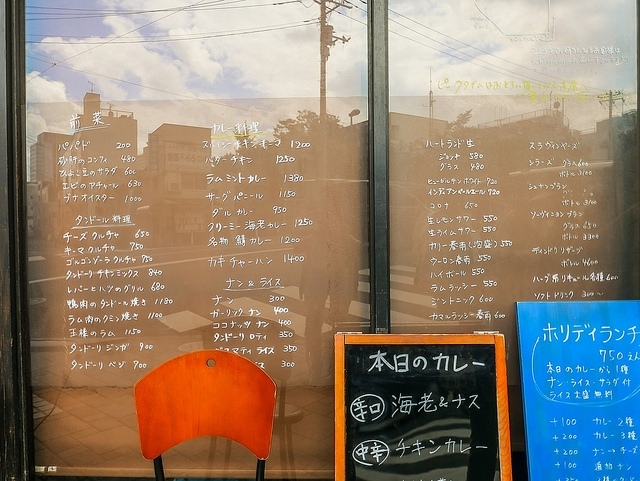 前菜
パパド 200
砂肝のコンフィ 480
ひよこ豆のサラダ 600
エビのアチャール 630
ブナオイスター 1000
タンドール料理
チーズ クルチャ 650
キーマ クルチャ 750
ゴルゴンゾーラ クルチャ 950
タンドーリ チキンミックス 840
レバーとハツのグリル 680
鴨肉のタンドール焼き 1180
ラム肉のクミン焼き 1100
王様のラム 1150
タンドーリ ジンガ 900
タンドーリ ベジ 900
カレー料理
チキンキーマ 1200
バターチキン 1250
ラムミントカレー 1380
サーグパニール 1150
ダルカレー 950
クリーミー海老カレー 1250
名物 鯖カレー 1200
カキチャーハン 1400
ナン & ライス
ナン 300
ガーリックナン 400
ココナッツナン 400
タンドーリ ロティ 350
バスマティライス 350
ス 300
ハートランド生
ジョッキ 580
グラス 480
ヒューガルデンホワイト 920
インディアンペールエール 920
コロナ 650
生レモンサワー 550
生ライムサワー 550
カリー春雨(泡盛) 550
ウーロン春雨 550
ハイボール 550
ラムラッシー 550
ジントニック 600
カマルラッシー春雨 600
スパークリング
シラーズ グラス 600
ボトル 3100
シュナンブラン
ボトル 3100
ソーヴィニヨンブラン
グラス 650
ボトル 3300
ボトル 4600
ハーブ系リキュール各種 600
ソフトドリンク 300〜
本日のカレー
辛口 海老&ナス
中辛 チキンカレー
ホリデイランチ
750えん
本日のカレーから1種
ナン・ライス・サラダ付
ライス大盛無料
+100 カレー2種
+200 カレー3種
+200 ナン→チーズ
+100 追加ナン